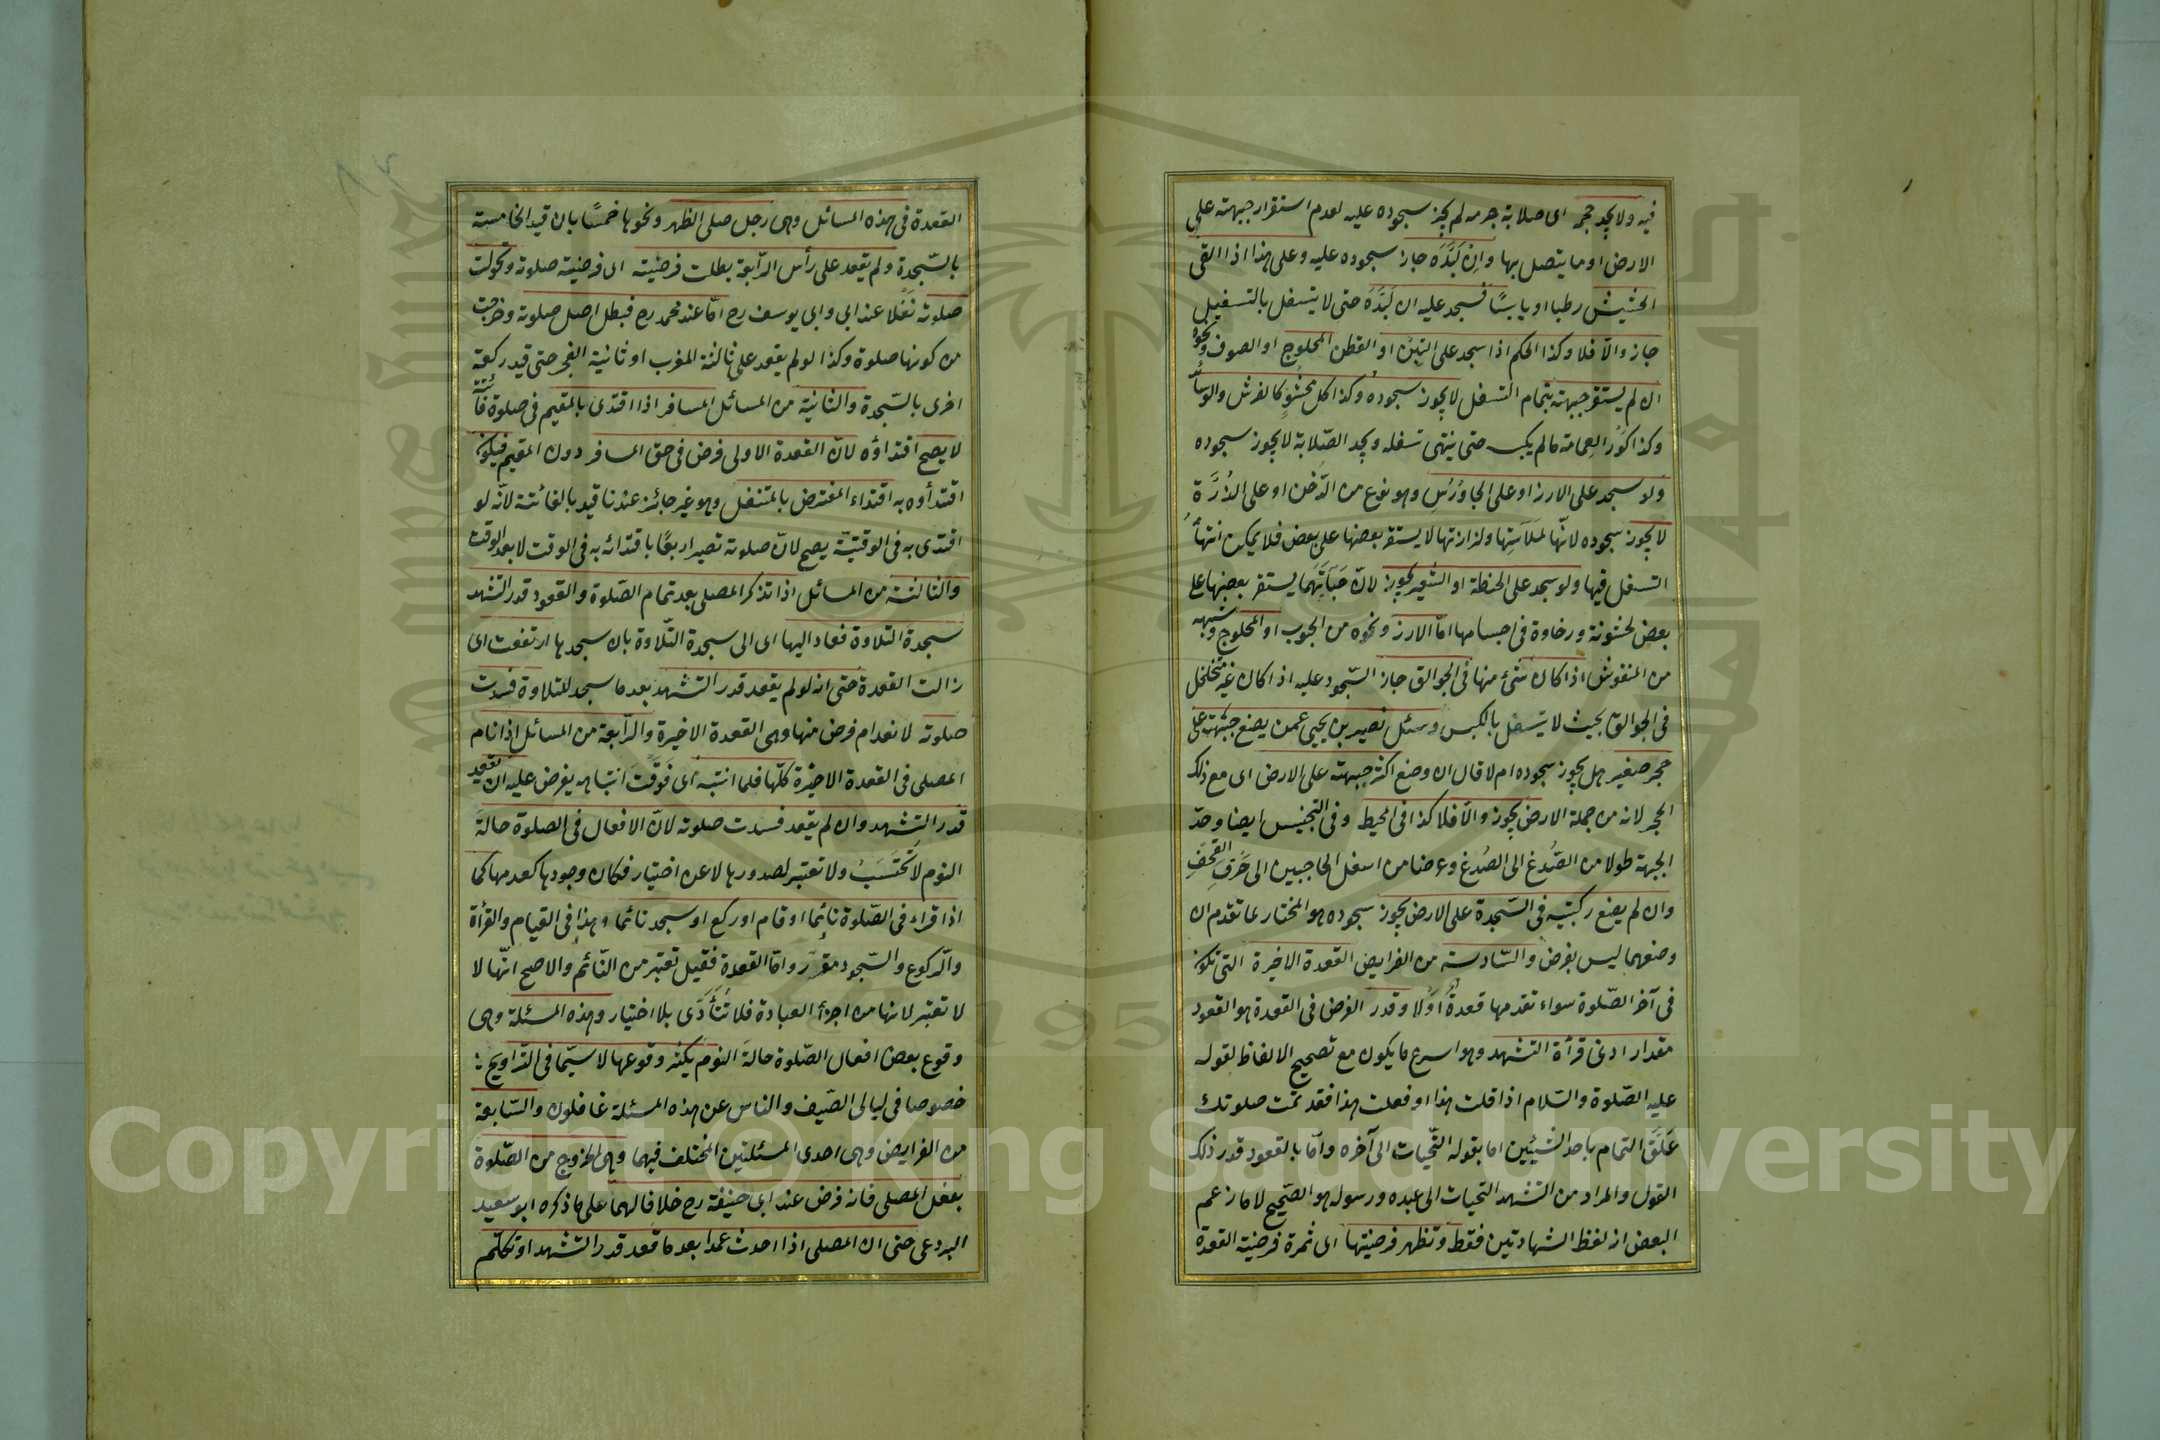 فيه ولا يجد حجمه اى صلابة جرمه لم يجز سجوده عليه لعدم استقرار جبهته على
الارض او ما يتصل بها وان لَبَّدَه جاز سجوده عليه وعلى هذا اذا القى
الحشيش رطبا او يابسًا فسجد عليه ان لَبَّدَه حتى لا يتسفل بالتسفيل
جاز والّا فلا وكذا الحكم اذا سجد على التبن او القطن المحلوج او الصوف ونحوه
ان لم يستقر جبهته بتمام التسفل لا يجوز سجوده وكذا كل محشوٍ كالفرش والوسائد
وكذا كَوْر العمامة ما لم يكبس حتى ينتهى تسفله ويجد الصّلابة لا يجوز سجوده
ولو سجد على الارز او على الجاوَرْس وهو نوع من الدّخن او على الذُرَّة
لا يجوز سجوده لانّها لملاستها ولزازتها لا يستقر بعضها على بعض فلا يمكن انتهاء
التسفل فيها ولو سجد على الحنطة او الشعير يجوز لانّ حَبّاتِهما يستقر بعضها على
بعض لخشونة ورخاوة فى اجسامها امّا الارز ونحوه من الحبوب او المحلوج وشبهه
من المنفوش اذا كان شئ منها فى الجوالق جاز السّجود عليه اذا كان غير متخلخل
فى الجوالق بحيث لا يتسفل بالكبس وسئل نصير بن يحيى عمن يضع جبهته على
حجر صغير هل يجوز سجوده ام لا قال ان وضع اكثر جبهته على الارض اى مع ذلك
الحجر لانه من جملة الارض يجوز والّا فلا كذا فى المحيط وفى التجنيس ايضا وحدّ
الجبهة طولا من الصُدغ الى الصُدغ وعرضا من اسفل الحاجبين الى حَرْفِ القحف
وان لم يضع ركبتيه فى السّجدة على الارض يجوز سجوده هو المختار لما تقدم ان
وضعهما ليس بفرض والسّادسة من الفرايض القعدة الاخيرة التى تكون
فى آخر الصّلوة سواء تقدمها قعدةٌ اَوْ لا وقدر الفرض فى القعدة هو القعود
مقدار ادنى قرأة التشهد وهو اسرع ما يكون مع تصحيح الالفاظ لقوله
عليه الصّلوة والسّلام اذا قلت هذا او فعلت هذا فقد تمّت صلوتك
عَلَّقَ التمام باحد الشيئين اما بقوله التّحيات الى آخره وامّا بالقعود قدر ذلك
القول والمراد من التشهد التحيات الى عبده ورسوله هو الصّحيح لا ما زعم
البعض انه لفظ الشهادتين فقط وتظهر فرضيتها اى ثمرة فرضية القعدة
القعدة فى هذه المسائل وهى رجل صلى الظهر ونحوها خمسًا بان قيد الخامسة
بالسّجدة ولم يقعد على رأس الرّابعة بطلت فرضيته اى فرضيّة صلوته وتحولت
صلوته نَفْلا عند ابى وابى يوسف رح امّا عند محمد رح فبطل اصل صلوته وخرجت
من كونها صلوة وكذا لو لم يقعد على ثالثة المغرب او ثانية الفجر حتى قيد ركعة
اخرى بالسّجدة والثانية من المسائل المسافر اذا اقتدى بالمقيم فى صلوة فائتة
لا يصح اقتداؤه لانّ القعدة الاولى فرض فى حق المسافر دون المقيم فيكون
اقتداؤه به اقتداء المفترض بالمتنفل وهو غير جائز عندنا قيد بالفائتة لانّه لو
اقتدى به فى الوقتيّة يصح لانّ صلوته تصير اربعًا باقتدائه به فى الوقت لا بعد الوقت
والثالثة من المسائل اذا تذكر المصلى بعد تمام الصّلوة والقعود قدر التشهد
سجدة التلاوة فعاد اليها اى الى سجدة التّلاوة بان سجدها ارتفعت اى
زالت القعدة حتى انه لو لم يقعد قدر التشهد بعد ما سجد للتلاوة فسدت
صلوته لانعدام فرض منها وهى القعدة الاخيرة والرّابعة من المسائل اذا نام
المصلى فى القعدة الاخيرة كلّها فلما انتبه اى فوَقْتَ انتباهه يفرض عليه ان يقعد
قدر التشهد وان لم يقعد فسدت صلوته لانّ الافعال فى الصلوة حالة
النوم لا تُحْتَسَبُ ولا تعتبر لصدورها لا عن اختيار فكان وجودها كعدمها كما
اذا قراء فى الصّلوة نائما او قام او ركع او سجد نائما وهذا فى القيام والقرأة
والرّكوع والسّجود مقرّر وامّا القعدة فقيل تعتبر من النّائم والاصح انّها لا
لا تعتبر لانها من اجزأ العبادة فلا تُتَأَدَّى بلا اختيار وهذه المسئلة وهى
وقوع بعض افعال الصّلوة حالة النوم يكثر وقوعها لا سيّما فى التّراويح
خصوصا فى ليالى الصّيف والناس عن هذه المسئلة غافلون والسّابعة
من الفرايض وهى احدى المسئلتين المختلف فيهما وهى الخروج من الصّلوة
بفعل المصلى فانه فرض عند ابى حنيفة رح خلافا لهما على ما ذكره ابو سعيد
البردعى حتى ان المصلى اذا احدث عمدا بعد ما قعد قدر التشهد او تكلّم
Copyright © King Saud University
1957